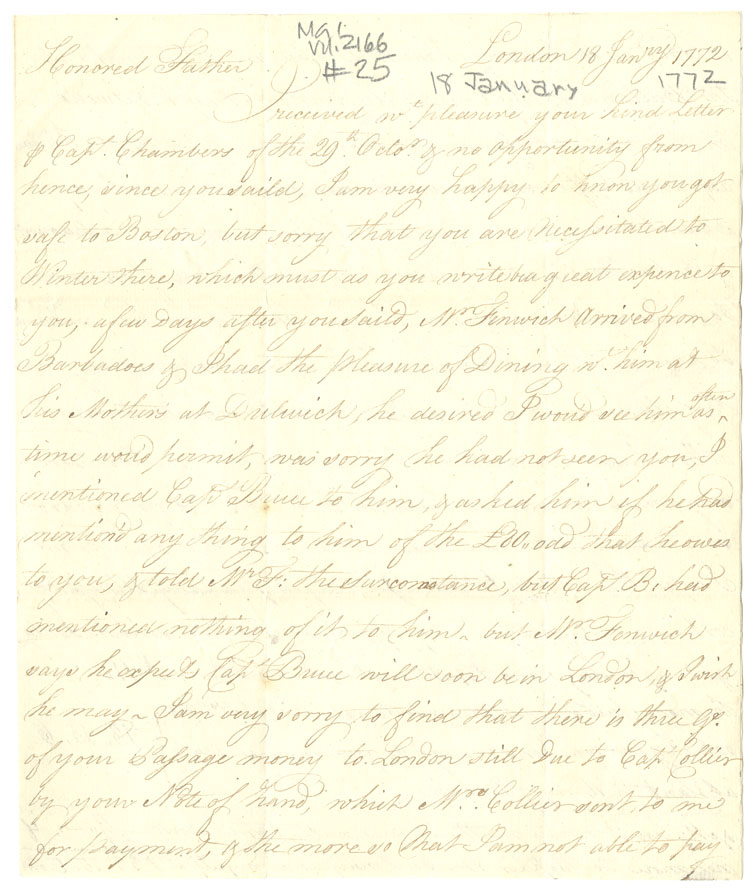 MG 1
Vol. 2166
#25
London 18 Janry 1772
Honored Father
18 January 1772
I received wt pleasure your kind Letter
⅌ Capt. Chambers of the 29th. Octor. & no opportunity from
hence, since you saild, I am very happy to know you got
safe to Boston, but sorry that you are necessitated to
Winter there, which must as you write be a great expence to
you, a few Days after you Saild, Mr. Fenwick Arrived from
Barbadoes & I had the pleasure of Dining wt. him at
his Mothers at Dulwich, he desired I wou'd see him often as
time wou'd permit, was sorry he had not seen you, I
mentioned Capt Bruce to him, & asked him if he had
mention'd any thing to him of the £20,, odd that he owes
to you, & told Mr F: the Surcomstance, but Capt B: had
mentioned nothing of it to him - but Mr. Fenwick
says he expects Capt Bruce will soon be in London, & I wish
he may ~ I am very sorry to find that there is three Gs.
of your Passage money to London still Due to Capt Collier
by your Note of hand, which Mrs. Collier sent to me
for payment, & the more so that I am not able to pay